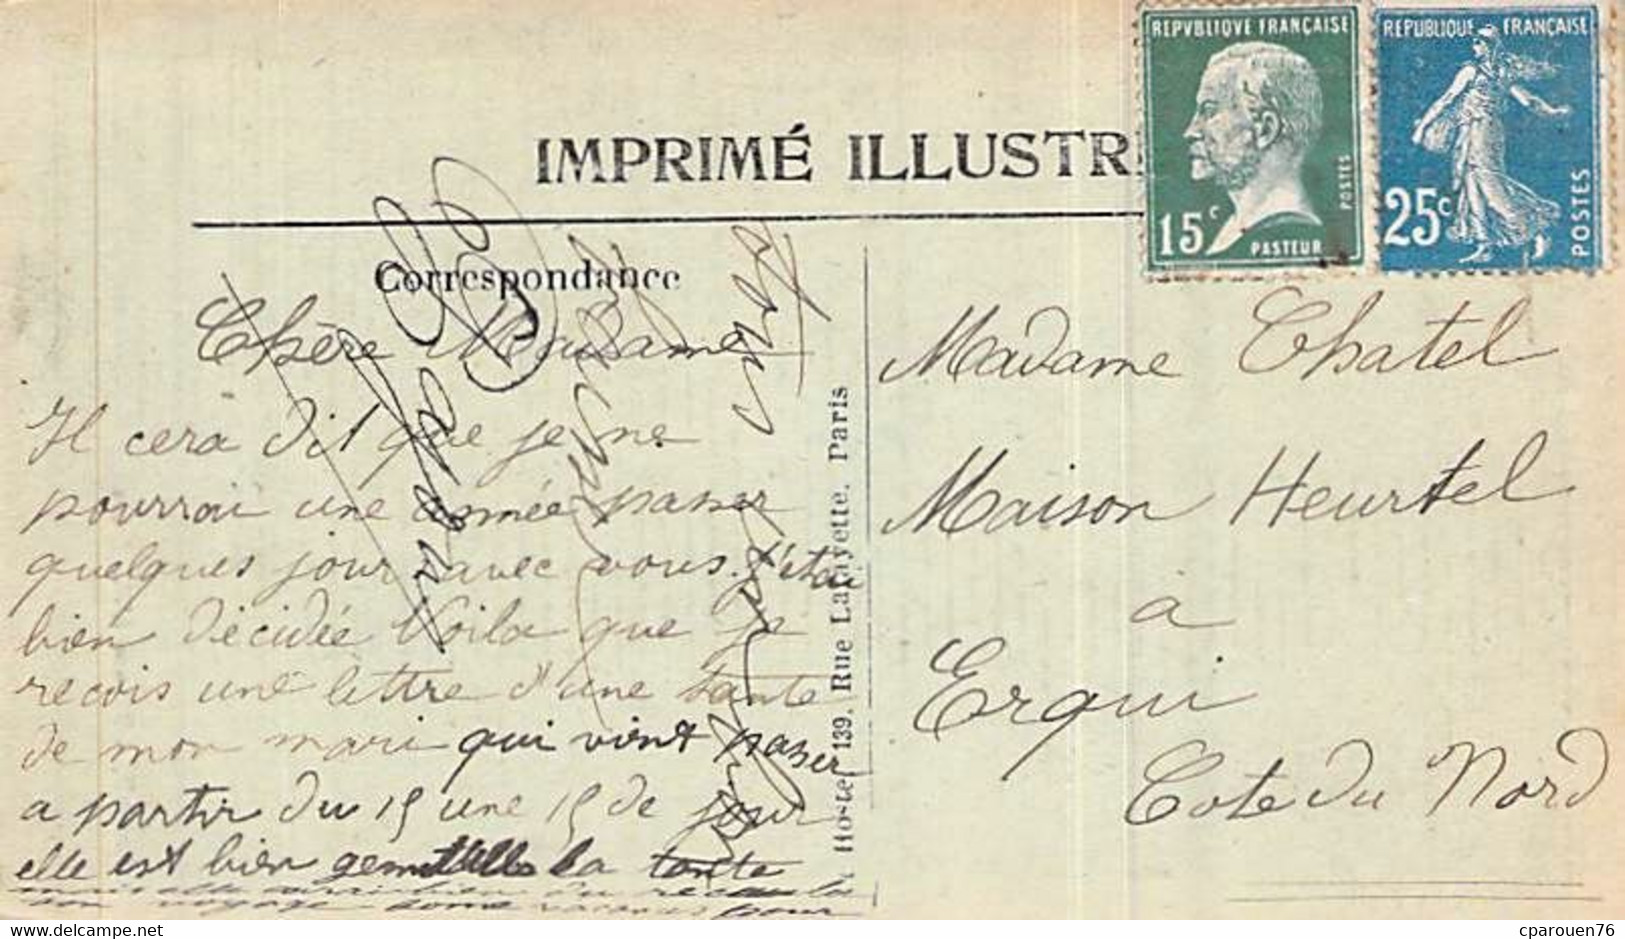 REPVBLIQVE FRANÇAISE
15c
PASTEUR
POSTES
REPUBLIQUE FRANÇAISE
25c
POSTES
IMPRIMÉ ILLUSTR
Correspondance
Chère Madame
Il cera dit que je ne
pourrai une année passer
quelques jour avec vous. j'étai
bien décidée Voila que je
recois une lettre d'une tante
de mon mari qui vient passer
a partir du 15 une 15 de jour
elle est bien gentille la tante
mais elle bien du
voyage bonne vacances pour
Hoste, 139. Rue Lafayette. Paris
Madame Chatel
Maison Heurtel
a
Erqui
Cote du Nord
cparouen76